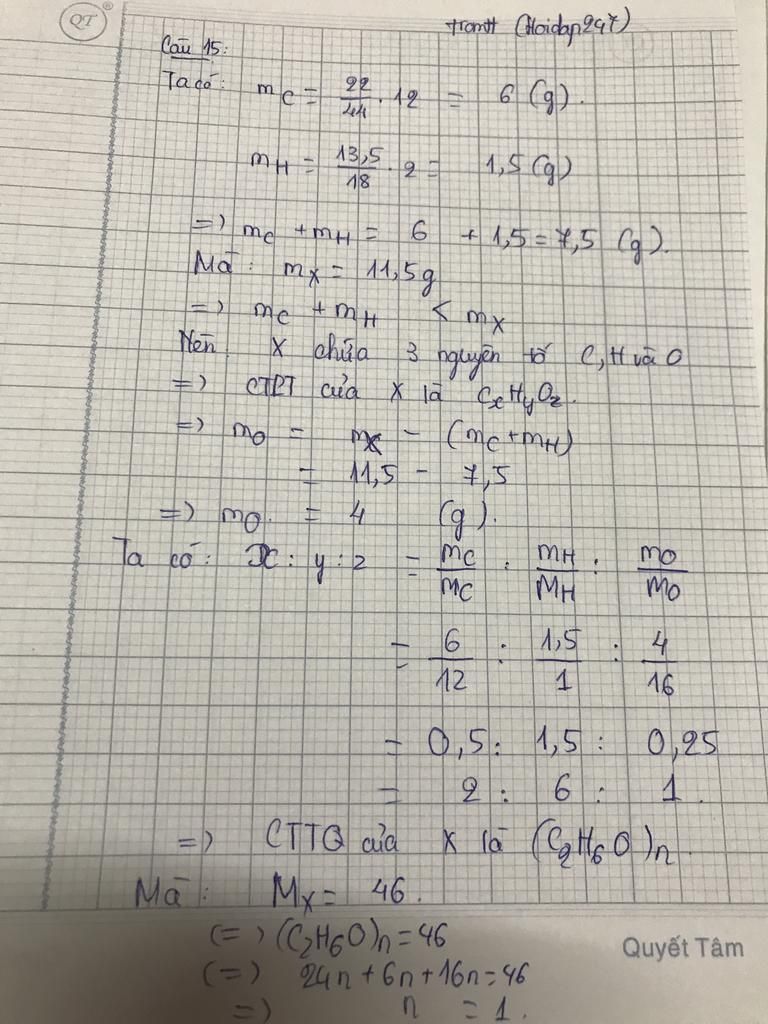 QT ®
tramtt (Hoidap247)
Câu 15:
Ta có: mC = 22/44 . 12 = 6 (g).
mH = 13,5/18 . 2 = 1,5 (g)
=> mC + mH = 6 + 1,5 = 7,5 (g).
Mà: mX = 11,5g
=> mC + mH < mX
Nên X chứa 3 nguyên tố C, H và O
=> CTPT của X là CxHyOz.
=> mO = mX - (mC + mH)
= 11,5 - 7,5
=> mO = 4 (g).
Ta có: x : y : z = mC/MC : mH/MH : mO/MO
= 6/12 : 1,5/1 : 4/16
= 0,5 : 1,5 : 0,25
= 2 : 6 : 1.
=> CTTQ của X là (C2H6O)n.
Mà: MX = 46.
(=) (C2H6O)n = 46
Quyết Tâm
(=) 24n + 6n + 16n = 46
=) n = 1.